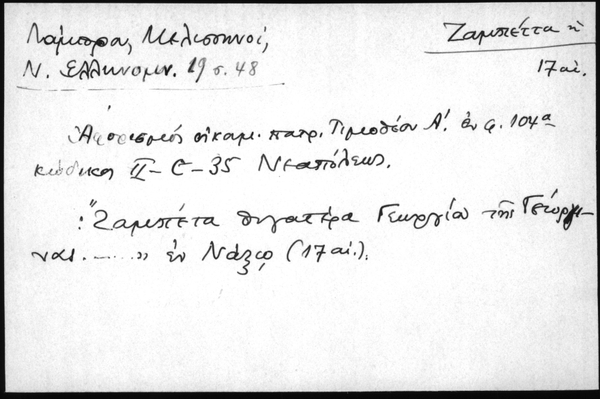 Λάμπρου, Μελισσηνοί,
Ν. Ἑλληνομν. 19 σ. 48
Ζαμπέττα ἡ
17 αἰ.
Ἀφορισμός οἰκουμ. πατρ. Τιμοθέου Α΄. ἐν φ. 104α
κώδικος II-C-35 Νεαπόλεως.
: "Ζαμπέτα θυγατέρα Γεωργίου τῆς
νας. ......» ἐν Νάξῳ (17 αἰ.).